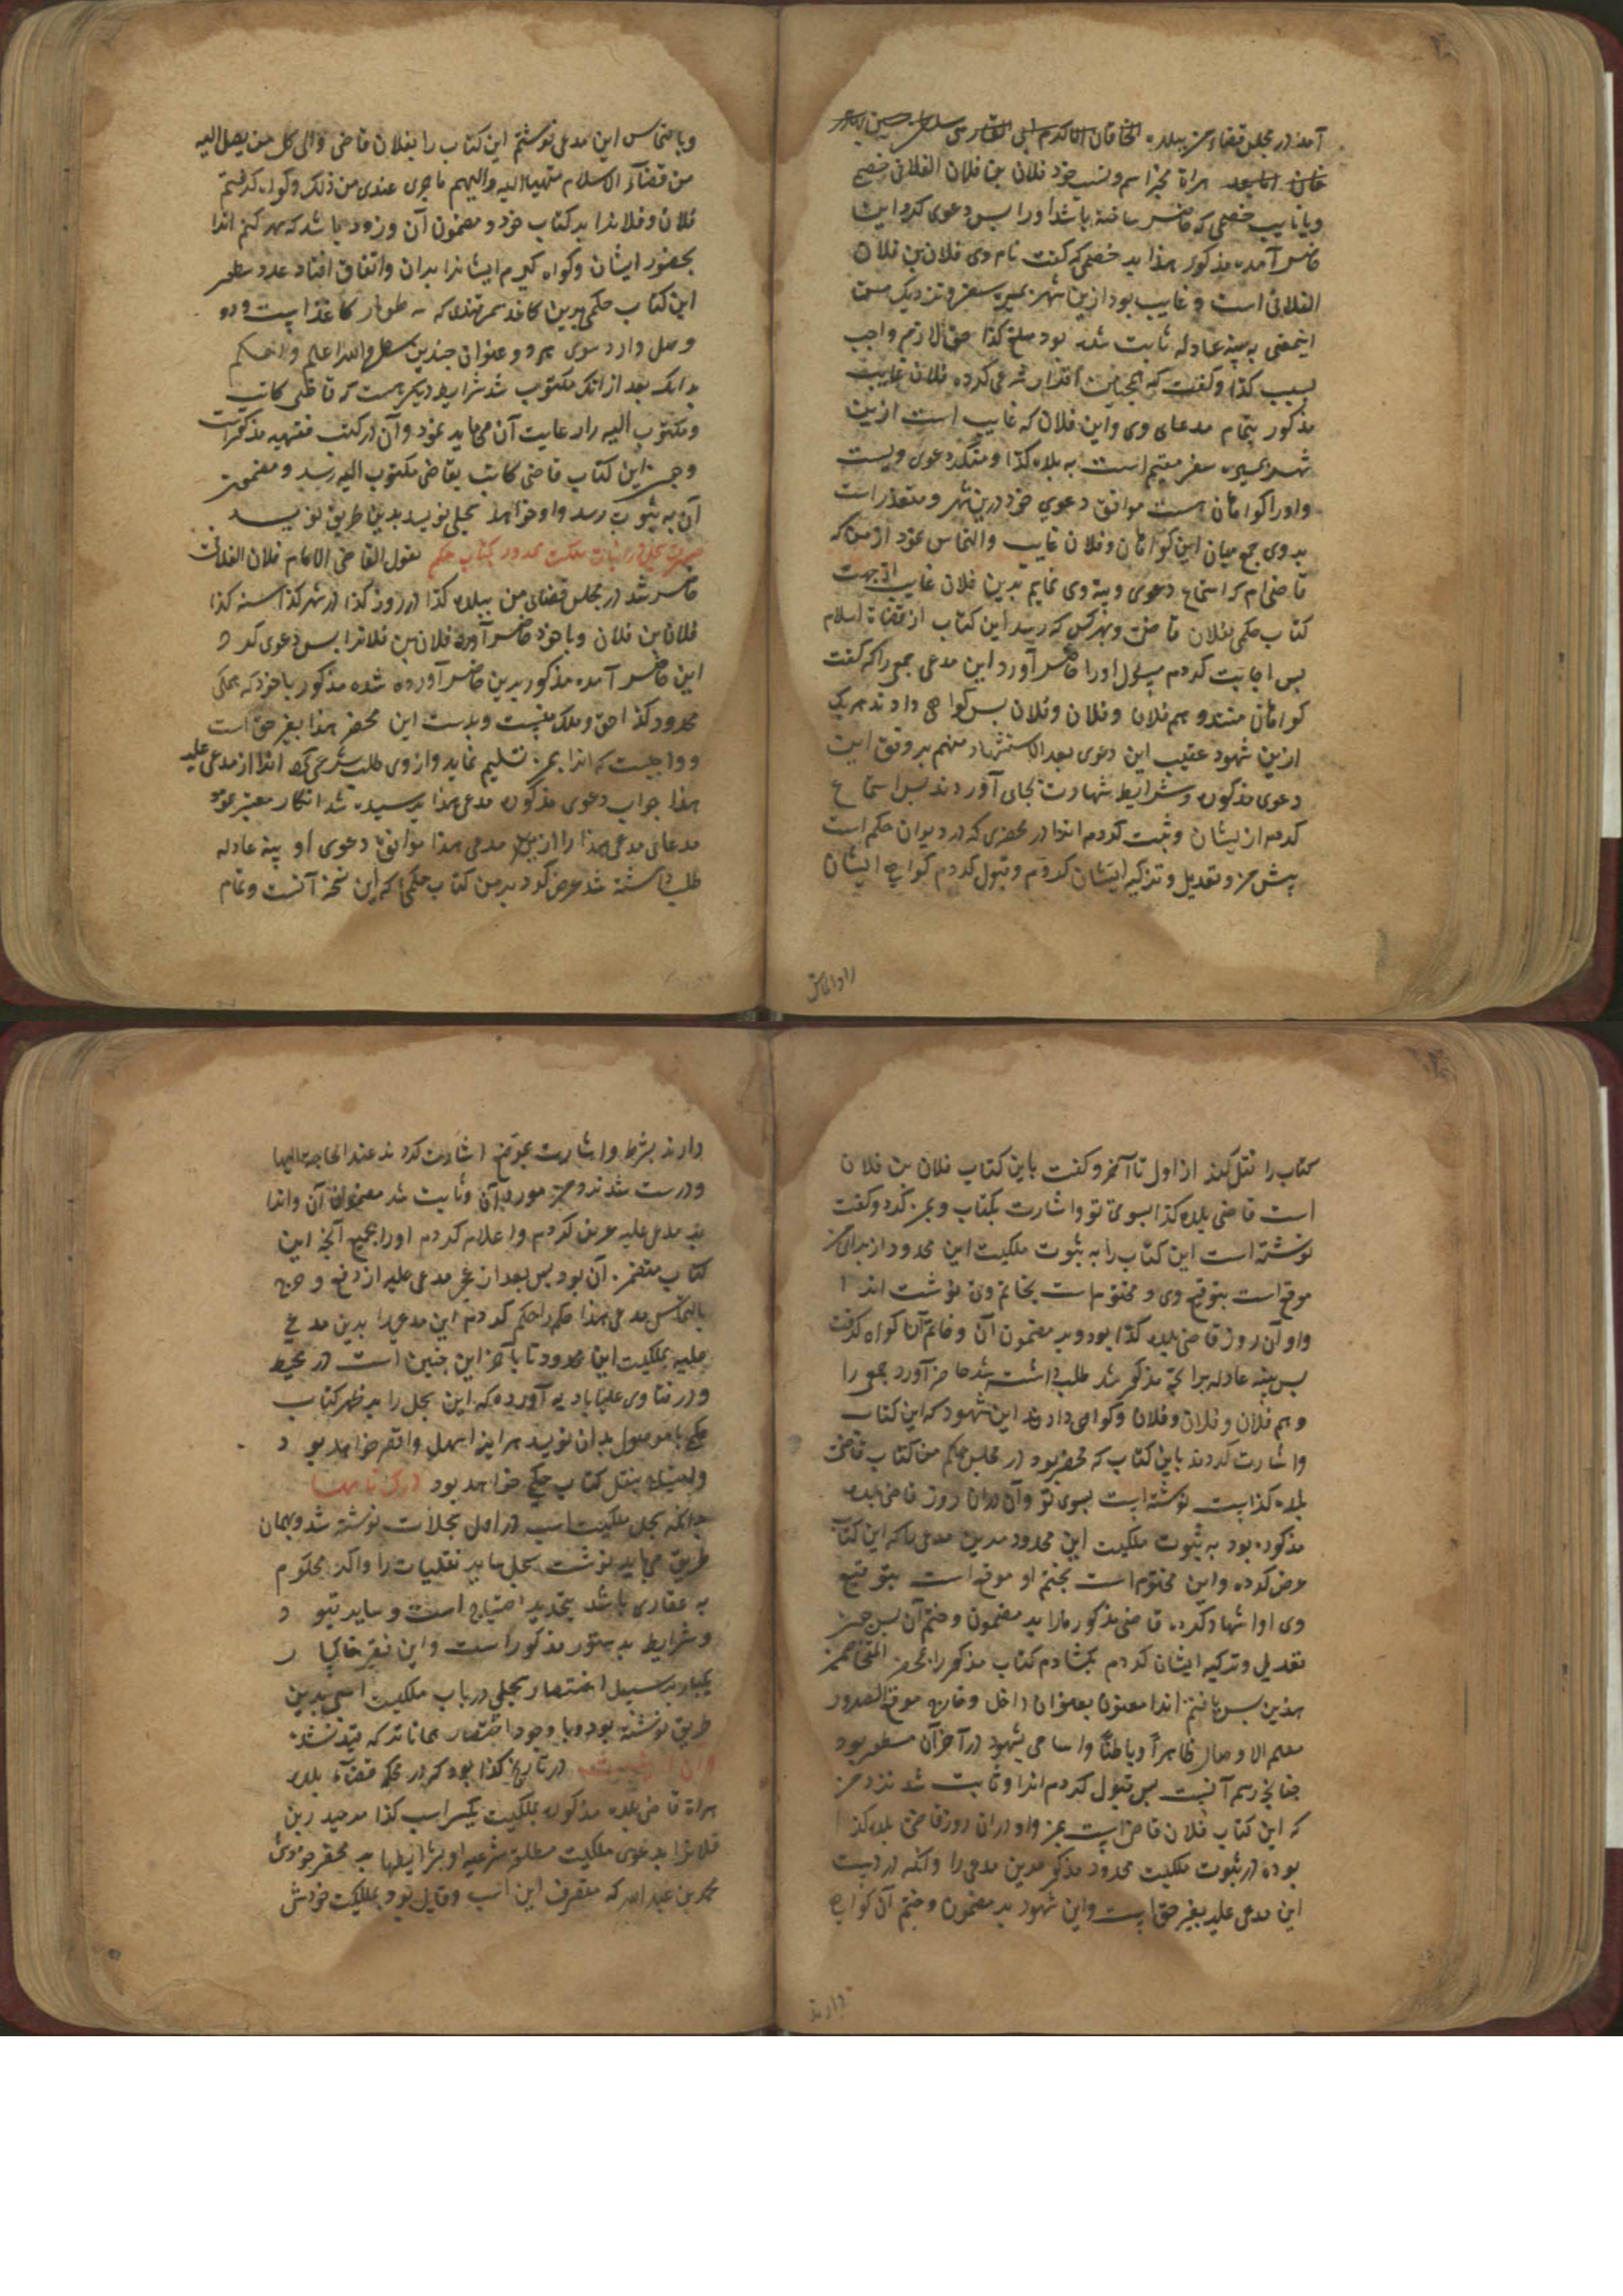 آمد در مجلس قضاء من ببلده الخاقان الاکرم ابی الغازی سلطان حسین بهادر
خان هراة مجیز اسم و نسب خود فلان بن فلان الفلانی خصمی
و یا نایب خصمی که حاضر ساخته باشد او را پس دعوی کرد این
حاضر آمده مذکور هذا بر خصمی که گفت نام وی فلان بن فلان
الفلانی است و غایب بود ازین شهر بمسیره سفر و نزدیک من
اینمعنی به بینه عادله ثابت شده بود مبلغ کذا حق لازم واجب
بسبب کذا و گفت که همچنین اقرار شرعی کرده فلان غایب
مذکور بتمام مدعای وی و این فلان که غایب است ازین
شهر بمسیره سفر مقیم است به بلده کذا و منکر دعوی ویست
و او را گواهان هست موافق دعوی خود درین شهر و متعذر است
بر وی جمع میان این گواهان و فلان غایب و التماس نمود از من که
قاضی ام که استماع دعوی و بینه وی نمایم بدین فلان غایب از جهت
کتاب حکمی بفلان قاضی و بهر کس که رسد این کتاب از قضاة اسلام
پس اجابت کردم مسئول او را حاضر آورد این مدعی جمعی را که گفت
گواهان منند و هم فلان و فلان و فلان پس گواهی دادند هر یک
ازین شهود عقیب این دعوی بعد الاستشهاد منهم بر وفق این
دعوی مذکوره و شرایط شهادت بجای آوردند پس استماع
کردم از ایشان و ثبت کردم انرا در محضری که در دیوان حکم است
پیش من و تعدیل و تزکیه ایشان کردم و قبول کردم گواهی ایشان
را و التماس
و بالتماس این مدعی نوشتم این کتاب را بفلان قاضی و الی کل من یصل الیه
من قضاة الاسلام متهیا الیه و الیهم ما جری عندی من ذلک و گواه گرفتم
فلان و فلان را بر کتاب خود و مضمون آن و زود باشد که مهر کنم انرا
بحضور ایشان و گواه گیرم ایشان را بدان و اتفاق افتاد عدد سطور
این کتاب حکمی برین کاغذ سمرقندی که سه طومار کاغذ است و دو
وصل دارد سوی مهر و عنوان چندین سطر و الله اعلم و احکم
بدانک بعد از آنک مکتوب شد شرایط دیگر هست که قاضی کاتب
و مکتوب الیه را رعایت آن می باید نمود و آن در کتب فقهیه مذکورست
و چون این کتاب قاضی کاتب بقاضی مکتوب الیه رسد و مضمون
آن به ثبوت رسد و او خواهد سجلی نویسد بدین طریق نویسد
صورت سجل در اثبات ملکیت محدود بکتاب حکمی یقول القاضی الامام فلان الفلانی
حاضر شد در مجلس قضای من ببلده کذا در روز کذا در شهر کذا سنه کذا
فلان بن فلان و با خود حاضر آورد فلان بن فلان را پس دعوی کرد
این حاضر آمده مذکور برین حاضر آورده شده مذکور با خود که جملگی
محدود کذا حق و ملک منیست و بدست این محضر هذا بغیر حق است
و واجبست که انرا بمن تسلیم نماید و از وی طلب شرعی کرد انرا از مدعی علیه
هذا جواب دعوی مذکوره مدعی هذا پرسیده شد انکار معتبر نمود
مدعای مدعی هذا را ازین مدعی هذا موافق دعوی او بینه عادله
طلب داشته شد عرض کرد بر من کتاب حکمی که این نسخه آنست و تمام
کتاب را نقل کند از اول تا آخر و گفت باین کتاب فلان بن فلان
است قاضی بلده کذا بسوی تو و اشارت بکتاب و بمن کرد و گفت
نوشته است این کتاب را به ثبوت ملکیت این محدود از برای من
موقع است بتوقیع وی و مختوم است بخاتم وی نوشت انرا
و او آن روز قاضی بلده کذا بود و بر مضمون آن و خاتم آن گواه گرفت
پس بینه عادله برانچه مذکور شد طلب داشته شد حاضر آورد جمعی را
و هم فلان و فلان و فلان و گواهی دادند این شهود که این کتاب
و اشارت کردند باین کتاب که محضر بود در مجلس حکم من کتاب قاضی
بلده کذاست نوشته است بسوی تو و آن دران روز قاضی بلده
مذکوره بود به ثبوت ملکیت این محدود مر این مدعی را که این کتاب
عرض کرده و این مختوم است بختم او موقع است بتوقیع
وی او اشهاد کرده قاضی مذکور ما را بر مضمون و ختم آن پس چون
تعدیل و تزکیه ایشان کردم بگشادم کتاب مذکور را بمحضر المتخاصمین
هذین پس یافتم انرا معنون بعنوان داخل و خارج موقع الصدور
معلم الاوصال ظاهراً و باطناً و اسامی شهود در آخر آن مسطور بود
چنانچ رسم آنست پس قبول کردم انرا و ثابت شد نزد من
که این کتاب فلان قاضی است بمن و او دران روز قاضی بلده کذا
بوده در ثبوت ملکیت محدود مذکور مر این مدعی را و آنکه در دست
این مدعی علیه بغیر حق است و این شهود بر مضمون و ختم آن گواهی
دارند
دارند بشرط و اشارت بموقع اشارت کردند عند الحاجه الیها
و درست شد نزد من مورد آن و ثابت شد مضمون آن و انرا
بر مدعی علیه عرض کردم و اعلام کردم او را بجمیع آنچه این
کتاب متضمن آن بود پس بعد از عجز مدعی علیه از دفع و حج
بالتماس مدعی هذا حکم را حکم کردم این مدعی را بدین مدعی
علیه بملکیت این محدود تا بآخر این چنین است در محیط
و در فتاوی علیابادیه آورده که این سجل را بر ظهر کتاب
حکمی یا موصول بدان نویسد هراینه اسهل و اقصر خواهد بود
و بمنزله نقل کتاب حکمی خواهد بود
بدانکه سجل ملکیت اسب در اصل سجلات نوشته شد و بهمان
طریق می باید نوشت سجل سایر نقلیات را و اگر محکوم
به عقاری باشد بتحدید احتیاج است و سایر قیود
و شرایط بدستور مذکور است و این فقیر خاکسار
یکبار بر سبیل اختصار سجلی در باب ملکیت اسبی بدین
طریق نوشته بود و با وجود اختصار همانا که مفید نشد
در تاریخ کذا بود که در محکمه قضاء بلده
هراة قاضی بلده مذکوره بملکیت یکسر اسب کذا مر حیدر بن
فلان را بدعوی ملکیت مطلقه شرعیه او بشرایطها بر محضر خودی
محمد بن عبدالله که متصرف این اسب و قایل بود بملکیت خودش